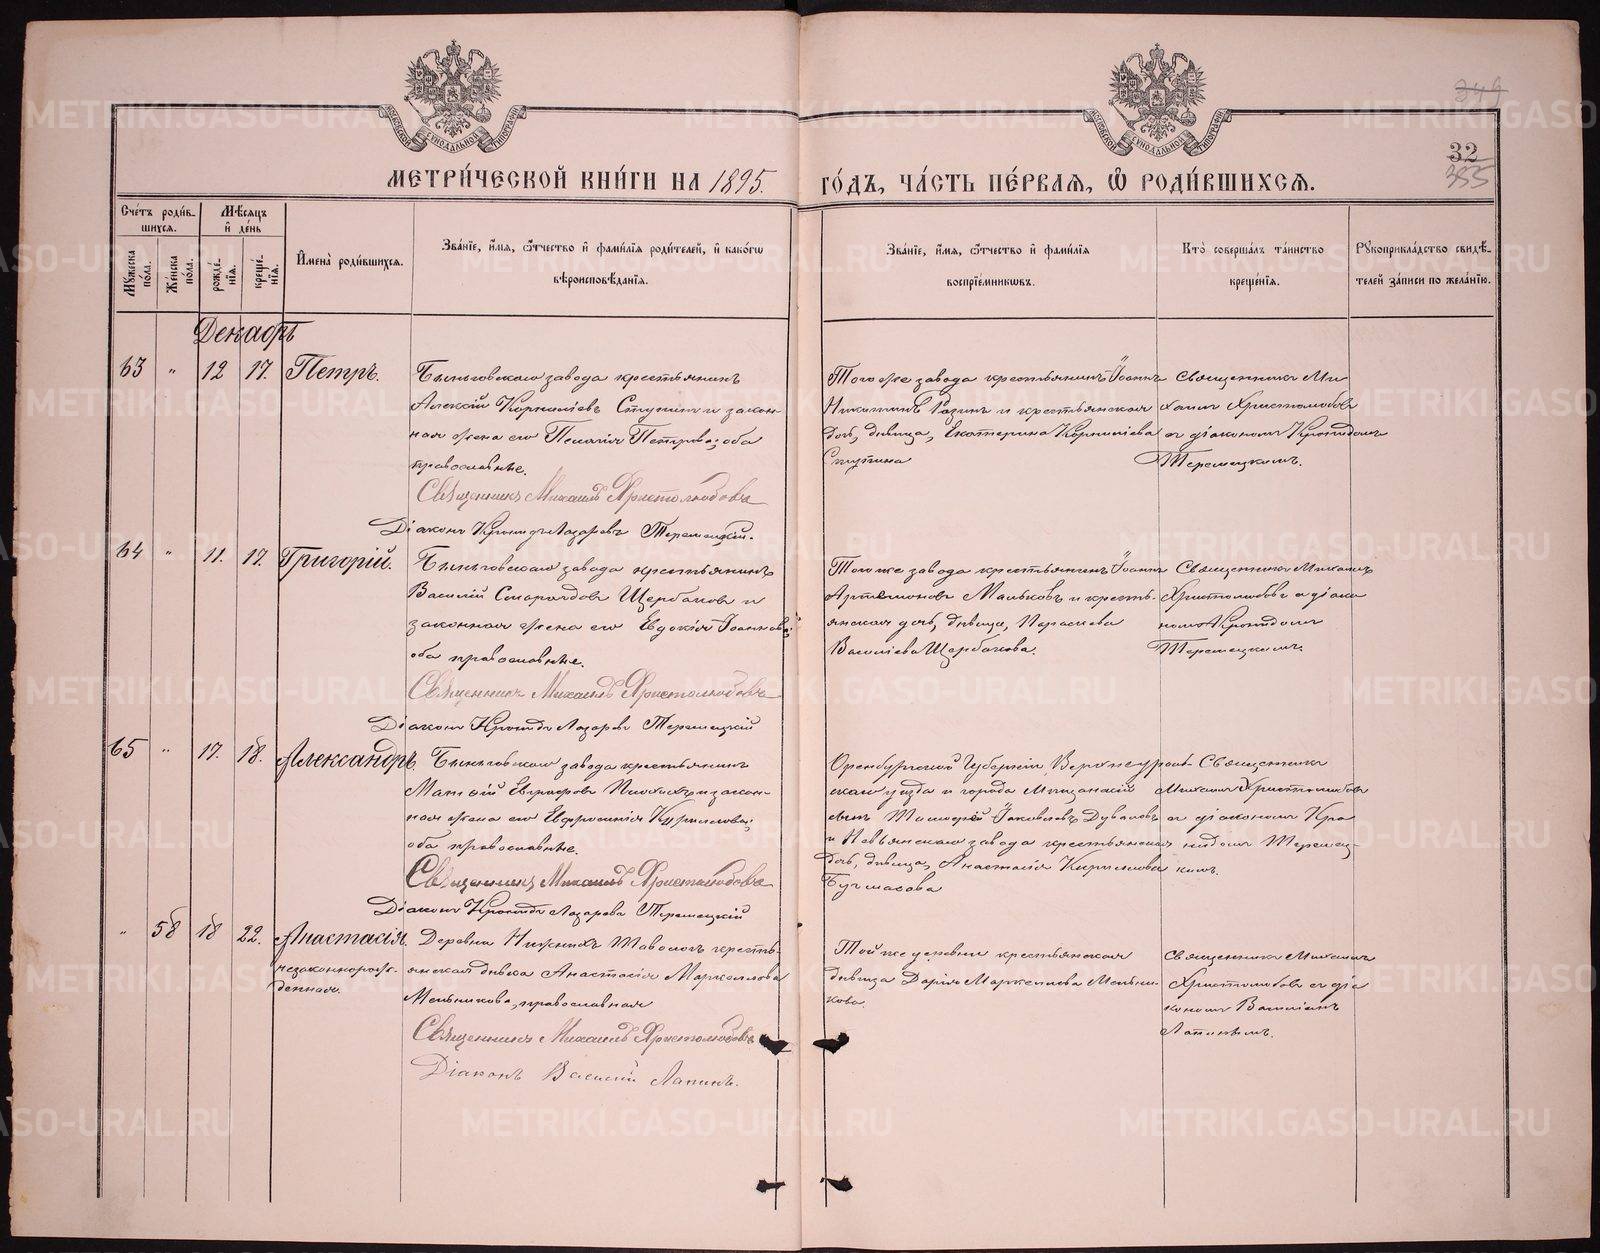 349
32
355
МЕТРИ́ЧЕСКОЙ КНИ́ГИ НА 1895. ГО́ДЪ, ЧА́СТЬ ПЕ́РВАЯ, Ѡ РОДИ́ВШИХСЯ.
Сче́тъ роди́вшихся.
Мꙋжеска по́ла.
Же́нска по́ла.
Мѣ́сяцъ и҆ де́нь
рожде́нїя.
креще́нїя.
И҆мена̀ роди́вшихся.
Зва́нїе, и҆́мя, ѻ҆́тчество и҆ фами́лїя роди́телей, и҆ како́гѡ
вѣроисповѣ́данїя.
Зва́нїе, и҆́мя, ѻ҆́тчество и҆ фами́лїя
воспрїе́мникѡвъ.
Кто̀ соверша́лъ та́инство
креще́нїя.
Рꙋкоприкла́дство свидѣ́-
телей за́писи по жела́нїю.
Декабрь
63 " 12 17. Петръ.
Быньговскаго завода крестьянинъ
Алексій Корниліевъ Ступинъ и закон-
ная жена его Пелагія Петрова; оба
православные.
Священникъ Михаилъ Христолюбовъ
Діаконъ Кронидъ Лазаревъ Теремецкій.
Того же завода крестьянинъ Іоаннъ
Никитинъ и крестьянская
дочь, дѣвица, Екатерина Корниліева
Ступина
Священникъ Ми
хаилъ Христолюбовъ
съ діакономъ Кронидомъ
Теремецкимъ.
64 " 11. 17. Григорій.
Быньговскаго завода крестьянинъ
Василій Смарагдовъ Щербаковъ и
законная жена его Евдокія Іоаннова;
оба православные.
Священникъ Михаилъ Христолюбовъ
Діаконъ Кронидъ Лазаревъ Теремецкій
Того же завода крестьянинъ Іоаннъ
Артемоновъ Мальковъ и кресть-
янская дочь, дѣвица, Параскева
Василіева Щербакова.
Священникъ Михаилъ
Христолюбовъ съ діако
номъ Кронидомъ
Теремецкимъ.
65 " 17. 18. Александръ.
Быньговскаго завода крестьянинъ
и закон-
ная жена его Евфросинія Кириллова;
оба православные.
Священникъ Михаилъ Христолюбовъ
Діаконъ Кронидъ Лазаревъ Теремецкій
Оренбургской Губерніи, Верхнеураль-
скаго уѣзда и города Мѣщанскій
сынъ Тимофей Іаковлевъ
и Невьянскаго завода крестьянская
дочь, дѣвица, Анастасія Кириллова
Священникъ
Михаилъ Христолюбовъ
съ діакономъ Кро
нидомъ Теремец-
кимъ.
" 58 18 22. Анастасія.
незаконнорож-
денная.
Деревни Нижнихъ Тавологъ кресть-
янская дѣвка Анастасія Маркеллова
Мельникова, православная
Священникъ Михаилъ Христолюбовъ
Діаконъ Василій Лапинъ.
Той же деревни крестьянская
дѣвица Дарія Маркелова Мельни-
кова.
Священникъ Михаилъ
Христолюбовъ съ діа
кономъ Василіемъ
Лапинымъ.